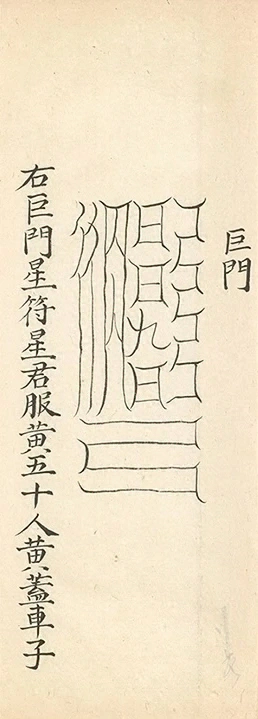 巨門
右巨門星符星君服黃五十人黃蓋車子